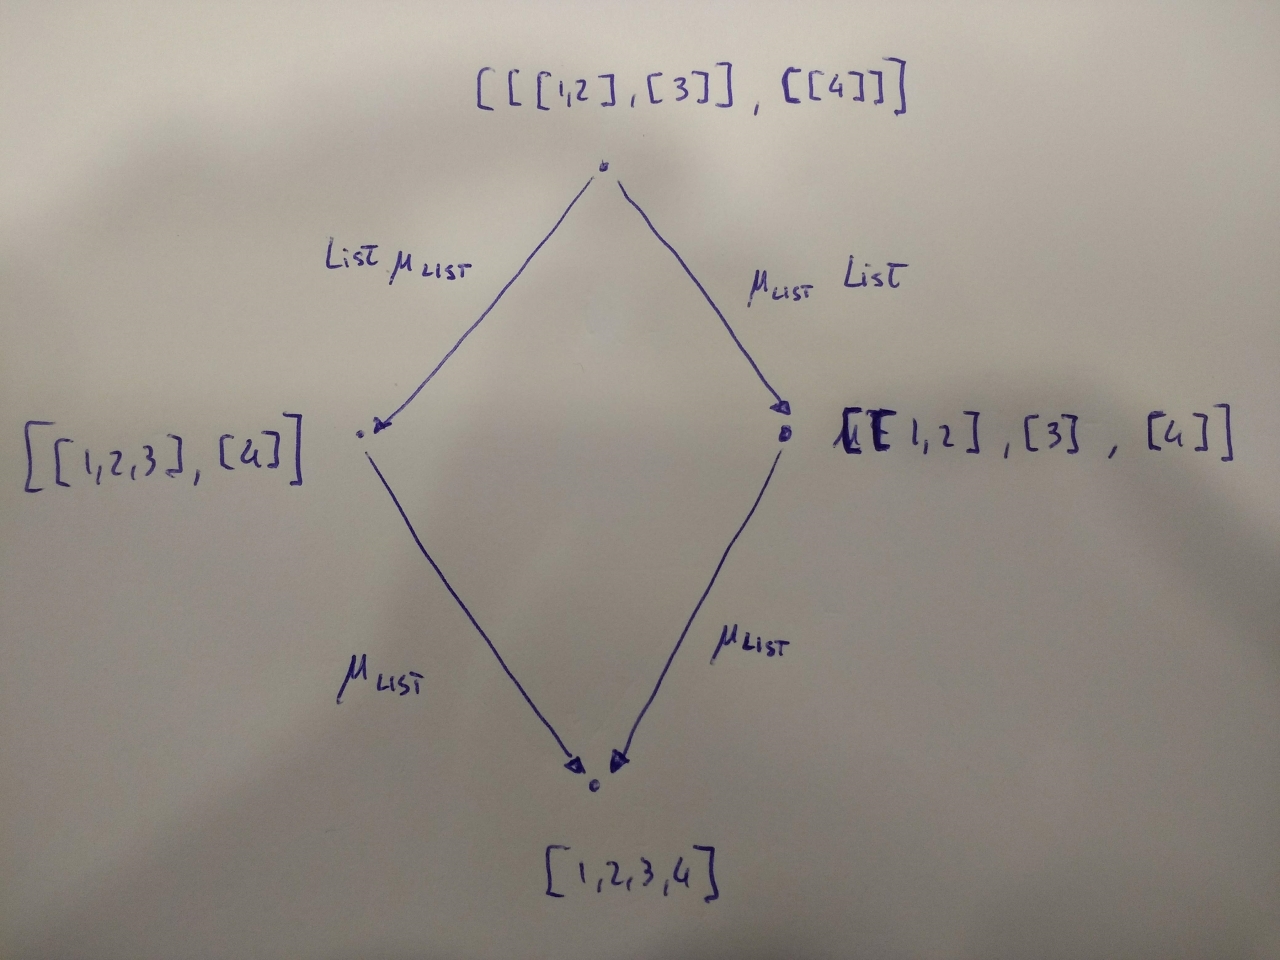 [[[1,2],[3]],[[4]]]
List μLIST
μLIST List
[[1,2,3],[4]]
[[1,2],[3],[4]]
μLIST
μLIST
[1,2,3,4]